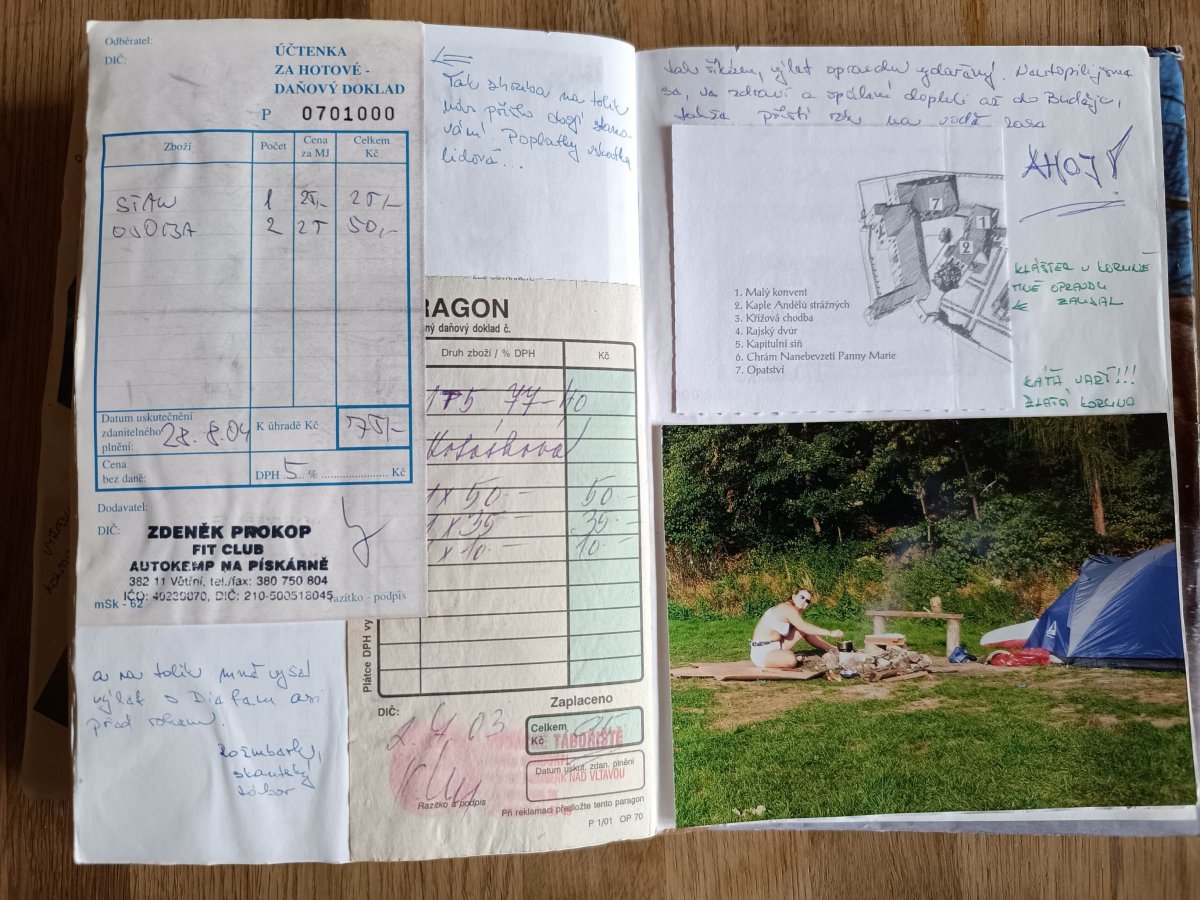 Odběratel:
DIČ:
ÚČTENKA
ZA HOTOVÉ -
DAŇOVÝ DOKLAD
P 0701000
Zboží Počet Cena za MJ Celkem Kč
STAN 1 25,- 25,-
OSOBA 2 25 50,-
Datum uskutečnění
zdanitelného
plnění: 28.8.04
K úhradě Kč 75,-
Cena
bez daně:
DPH 5 % Kč
Dodavatel:
DIČ:
ZDENĚK PROKOP
FIT CLUB
AUTOKEMP NA PÍSKÁRNĚ
382 11 Větřní, tel./fax: 380 750 804
IČO: 40239870, DIČ: 210-500518045
mSk - 62 razítko - podpis
a na tolik mně vyšel
výlet s
před rokem.
Rožmberk,
skautský
tábor
Tak zhruba na tolik
nás přišlo
Poplatky vskutku
lidová...
RAGON
ný daňový doklad č.
Druh zboží / % DPH Kč
1 x 50.- 50.-
1 x 35.- 35.-
1 x 10.- 10.-
Plátce DPH vy
DIČ:
Zaplaceno
Celkem
Kč
TÁBOŘIŠTĚ
Datum uskut. zdan. plnění
NAD VLTAVOU
Razítko a podpis
Při reklamaci předložte tento paragon
P 1/01 OP 70
Tak říkám, výlet opravdu vydařený. Neutopili jsme
se, ve zdraví a spálení dopluli až do Budějc,
takže příští rok na vodě zase
AHOJ!
7
1
2
1. Malý konvent
2. Kaple Andělů strážných
3. Křížová chodba
4. Rajský dvůr
5. Kapitulní síň
6. Chrám Nanebevzetí Panny Marie
7. Opatství
KLÁŠTER V KORUNĚ
MNĚ OPRAVDU
ZAUJAL
KÁŤA VAŘÍ!!!
ZLATÁ KORUNA